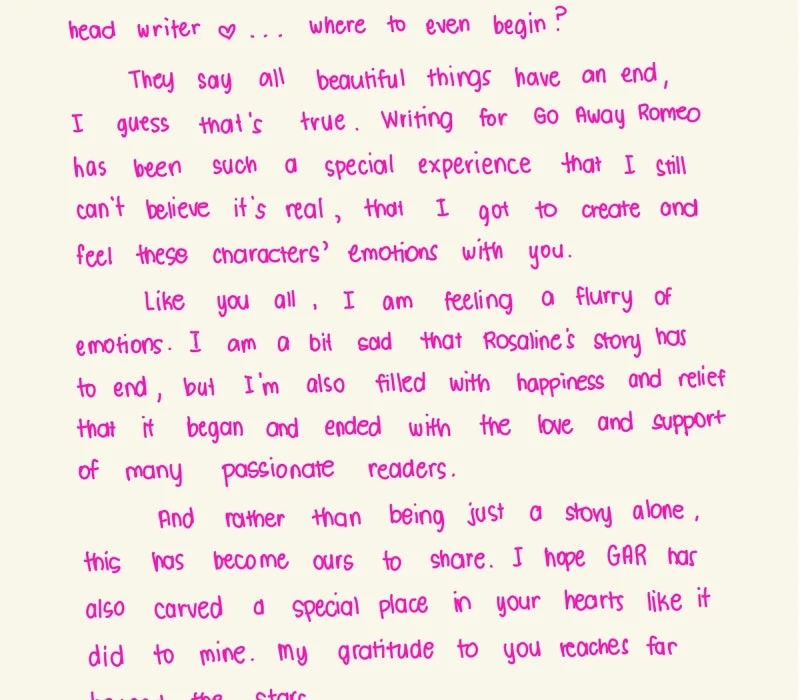 head writer ♡ ... where to even begin?
They say all beautiful things have an end,
I guess that's true. Writing for Go Away Romeo
has been such a special experience that I still
can't believe it's real, that I got to create and
feel these characters' emotions with you.
Like you all, I am feeling a flurry of
emotions. I am a bit sad that Rosaline's story has
to end, but I'm also filled with happiness and relief
that it began and ended with the love and support
of many passionate readers.
And rather than being just a story alone,
this has become ours to share. I hope GAR has
also carved a special place in your hearts like it
did to mine. My gratitude to you reaches far
beyond the stars